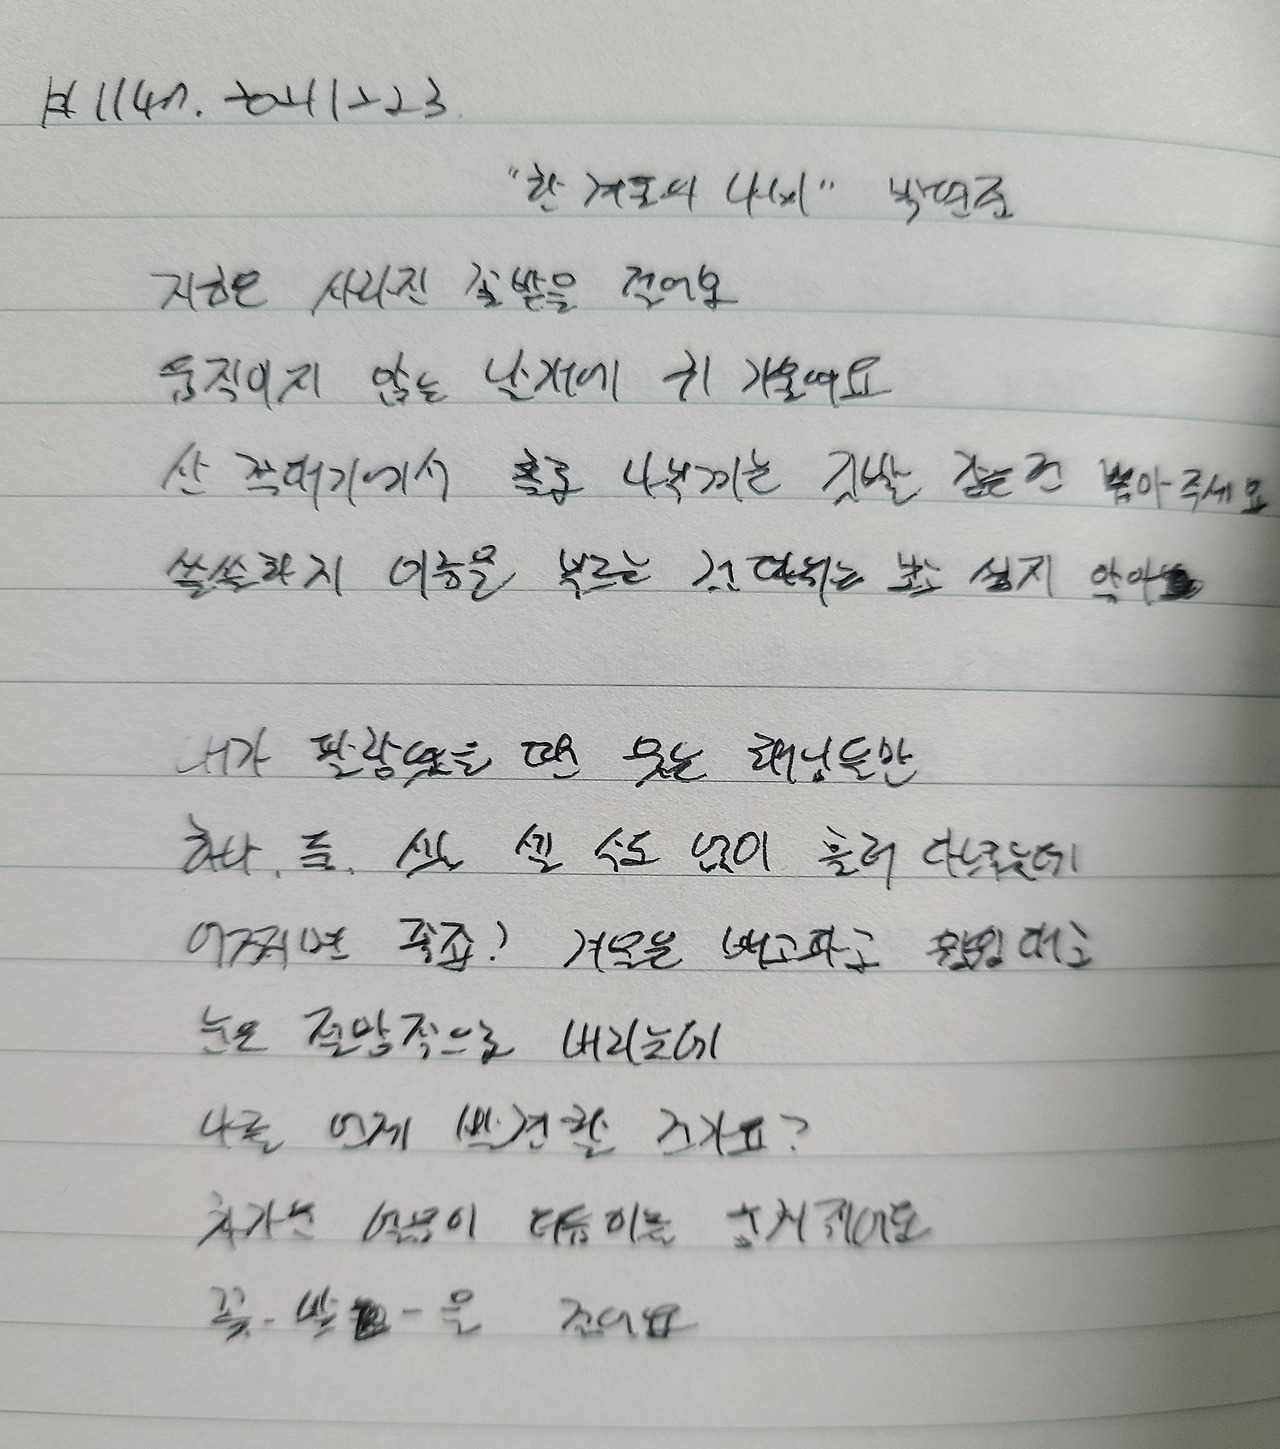 "한 겨울의 나비" 박연준
지금은 사라진 꽃밭을 걸어요
움직이지 않는 날개에 귀 기울여요
산 꼭대기에서 홀로 나부끼는 깃발 같은 건 뽑아주세요
쓸쓸하지 이름을 부르는 건 보고 싶지 않아
내가 팔랑였을 땐 웃는 태양들만
하나, 둘, 셋, 셀 수도 없이 흘러 다녔는데
어쩌면 좋죠? 겨울은 배고파고 앙앙대고
눈은 절망적으로 내리는데
나를 언제 발견할 건가요?
차가운 얼음이 더듬이를 스쳐갔어요
꽃-밭-을 걸어요